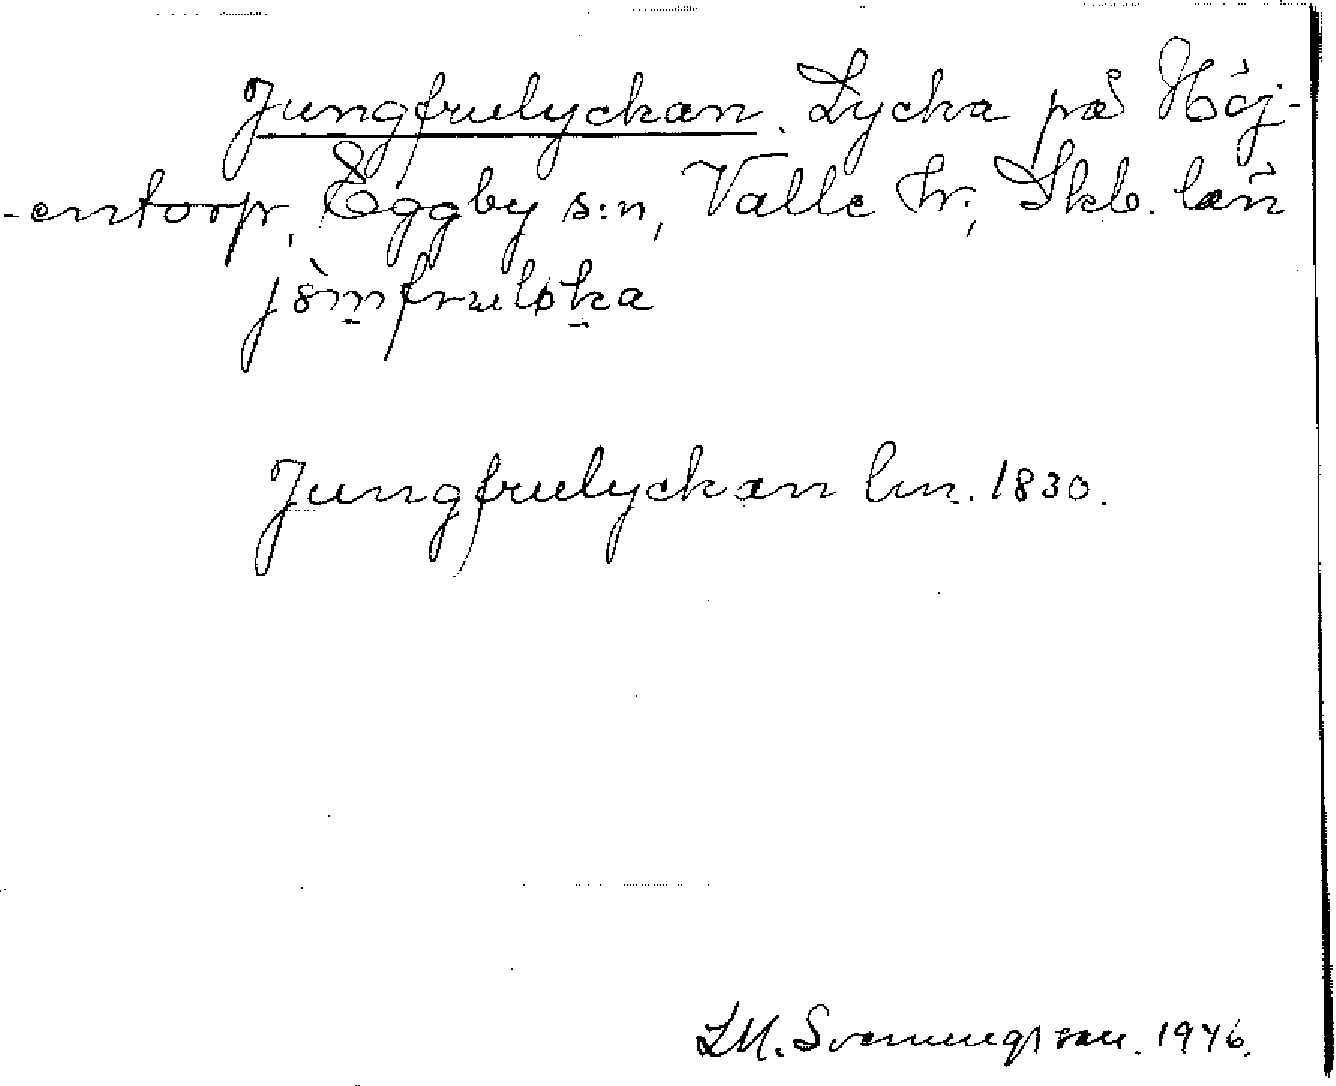 Jungfrulyckan. Lycka på Höj-
-entorp, Eggby s:n, Valle hr, Skb. län
Jungfrulyckan lm. 1830.
LM. Svenungsson. 1946.